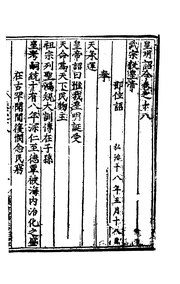 皇明詔令卷之十八
武宗毅皇帝
即位詔 弘治十八年五月十八
奉
天承運
皇帝詔曰惟我皇明誕受
天命為天下民物主
祖宗列聖鴻規大訓傳在子孫
皇考嗣統十有八年深仁至德覃被海內治化之盛
在古罕聞間復憫念民窮